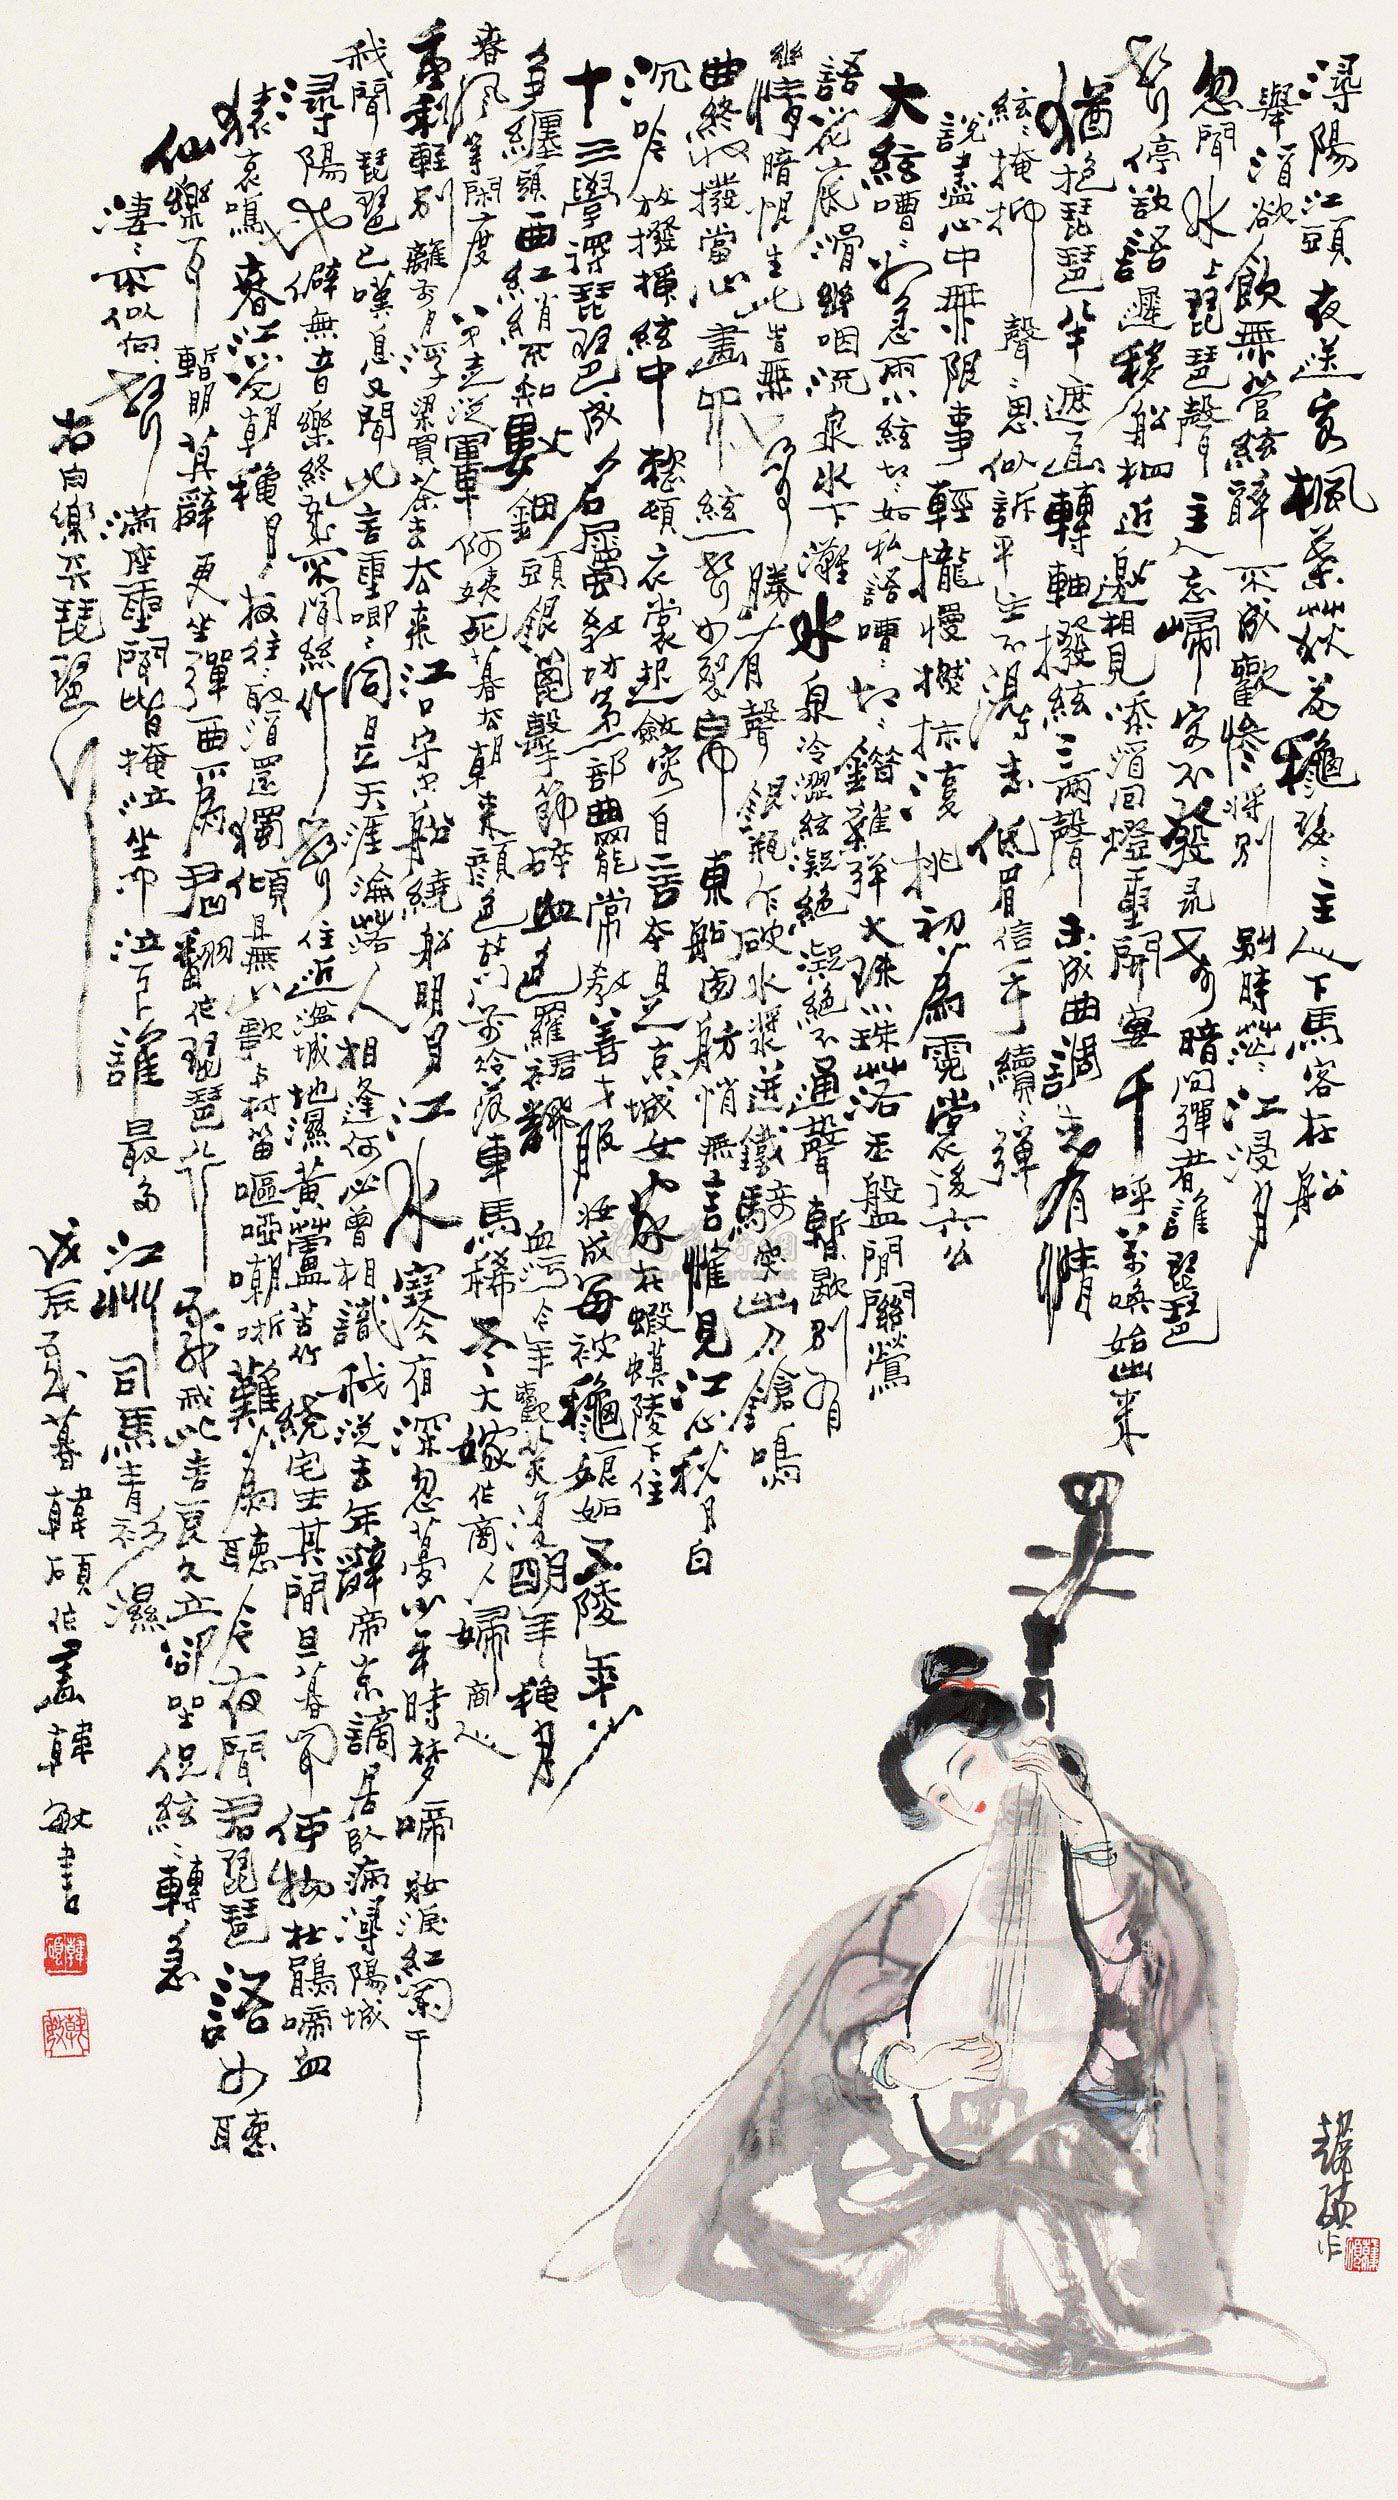 潯陽江頭夜送客楓葉荻花穐瑟〻主人下馬客在船
舉酒欲飲無管絃醉不成歡慘將別別時茫〻江浸月
忽聞水上琵琶聲主人忘歸客不發尋聲暗問彈者誰琵琶
聲停欲語遲移船相近邀相見添酒回燈重開宴千呼萬喚始出來
猶抱琵琶半遮面轉軸撥絃三兩聲未成曲調先有情
絃〻掩抑聲〻思似訴平生不得志低眉信手續〻彈
說盡心中無限事輕攏慢撚抹復挑初為霓裳後六公
大絃嘈〻如急雨小絃切〻如私語嘈〻切〻錯雜彈大珠小珠落玉盤間關鶯
語花底滑幽咽流泉水下灘水泉冷澀絃凝絕凝絕不通聲暫歇別有
幽情暗恨生此時無聲勝有聲銀瓶乍破水漿迸鐵騎突出刀鎗鳴
曲終收撥當心畫四絃一聲如裂帛東船西舫悄無言惟見江心秋月白
沉吟放撥插絃中整頓衣裳起斂容自言本是京城女家在蝦蟆陵下住
十三學得琵琶成名屬教坊第一部曲罷常教善才服妝成每被穐娘妬五陵年少
爭纏頭一曲紅綃不知數鈿頭銀篦擊節碎血色羅裙翻血污今年歡笑復明年穐月
春風等閑度弟走從軍阿姨死暮去朝來顏色故門前冷落車馬稀老大嫁作商人婦商人
重利輕別離前月浮梁買茶去去來江口守空船繞船明月江水寒夜深忽夢少年時夢啼妝淚紅闌干
我聞琵琶已嘆息又聞此言重唧〻同是天涯淪落人相逢何必曾相識我從去年辭帝京謫居臥病潯陽城
潯陽地僻無音樂終歲不聞絲竹聲住近湓城地濕黃蘆苦竹繞宅生其間旦暮聞何物杜鵑啼血
猿哀鳴春江花朝穐月夜往〻取酒還獨傾豈無山歌与村笛嘔啞嘲哳難為聽今夜聞君琵琶語如聽
仙樂耳暫明莫辭更坐彈一曲為君翻作琵琶行感我此言良久立卻坐促絃〻轉急
淒〻不似向前聲滿座重聞皆掩泣坐中泣下誰最多江州司馬青衫濕
右白樂天琵琶行
戊辰歲暮韓碩作畫韓敏書
韓碩
韓敏
韓碩作
韓碩